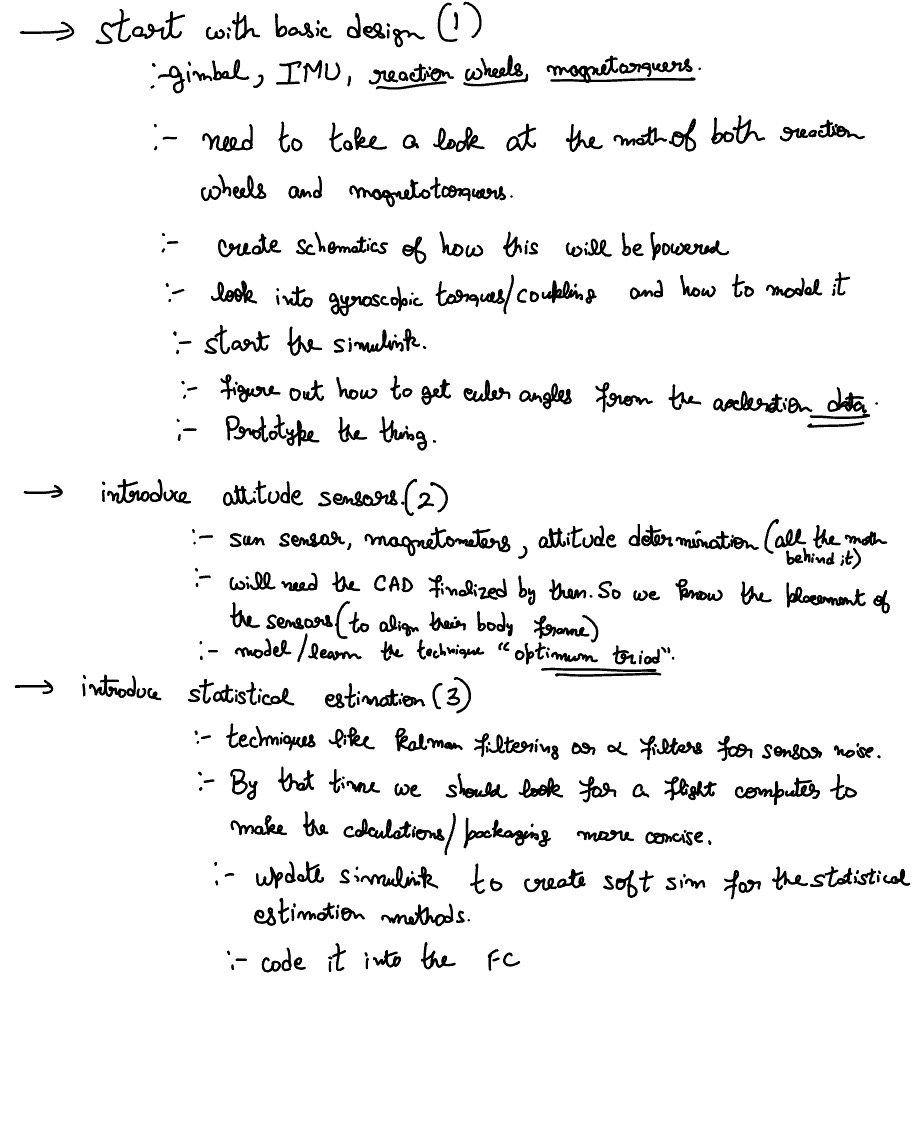 → start with basic design (1)
:- gimbal, IMU, reaction wheels, magnetorquers.
:- need to take a look at the math of both reaction
wheels and magnetotorquers.
:- create schematics of how this will be powered
:- look into gyroscopic torques/coupling and how to model it
:- start the simulink.
:- figure out how to get euler angles from the accleration data.
:- Prototype the thing.
→ introduce attitude sensors.(2)
:- sun sensor, magnetometers, attitude determination (all the math
behind it)
:- will need the CAD finalized by then. So we know the placement of
the sensors (to align their body frame)
:- model/learn the technique "optimum triad".
→ introduce statistical estimation (3)
:- techniques like kalman filtering or α filters for sensor noise.
:- By that time we should look for a flight computer to
make the calculations/packaging more concise.
:- update simulink to create soft sim for the statistical
estimation methods.
:- code it into the FC